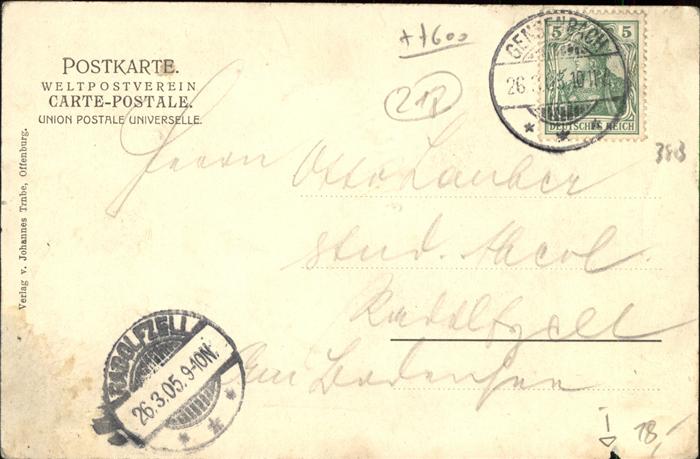 POSTKARTE.
WELTPOSTVEREIN
CARTE-POSTALE.
UNION POSTALE UNIVERSELLE.
Verlag v. Johannes Trube, Offenburg.
7600
218
GENGENBACH
26.3.05.10
5 5
DEUTSCHES REICH
383
Herrn
Otto Lauber
stud.
Radolfzell
Am Bodensee
RADOLFZELL
26.3.05.9-10N.
18,